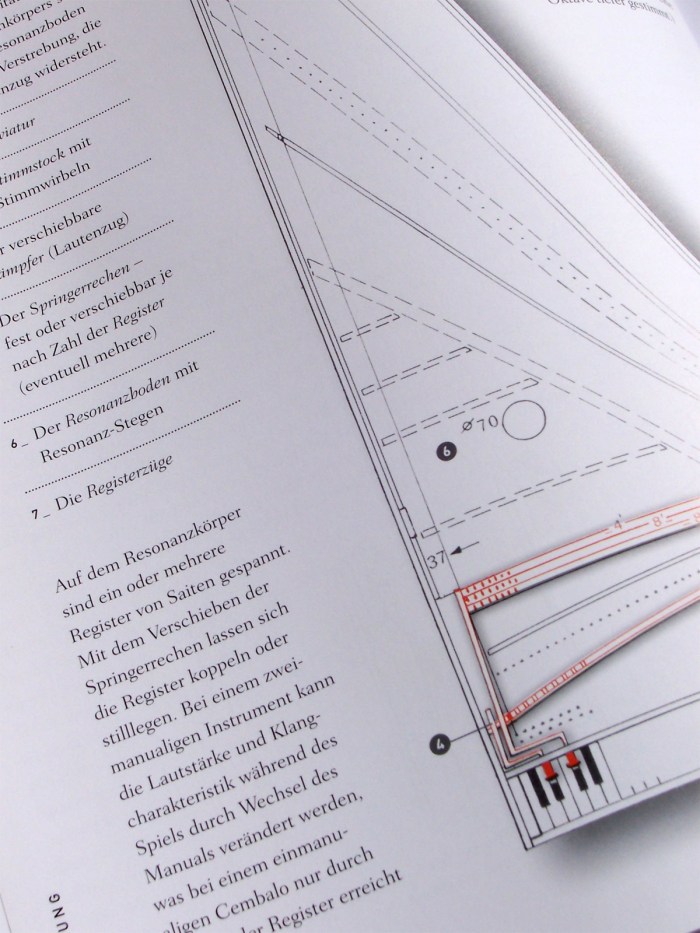 nkörpers
esonanzboden
Verstrebung, die
nzug widersteht.
viatur
timmstock mit
Stimmwirbeln
r verschiebbare
ämpfer (Lautenzug)
Der Springerrechen –
fest oder verschiebbar je
nach Zahl der Register
(eventuell mehrere)
6_ Der Resonanzboden mit
Resonanz-Stegen
7_ Die Registerzüge
Auf dem Resonanzkörper
sind ein oder mehrere
Register von Saiten gespannt.
Mit dem Verschieben der
Springerrechen lassen sich
die Register koppeln oder
stilllegen. Bei einem zwei-
manualigen Instrument kann
die Lautstärke und Klang-
charakteristik während des
Spiels durch Wechsel des
Manuals verändert werden,
was bei einem einmanu-
aligen Cembalo nur durch
der Register erreicht
UNG
Oktave tiefer gestimmt.
6
⌀70
37
4'
8'
4